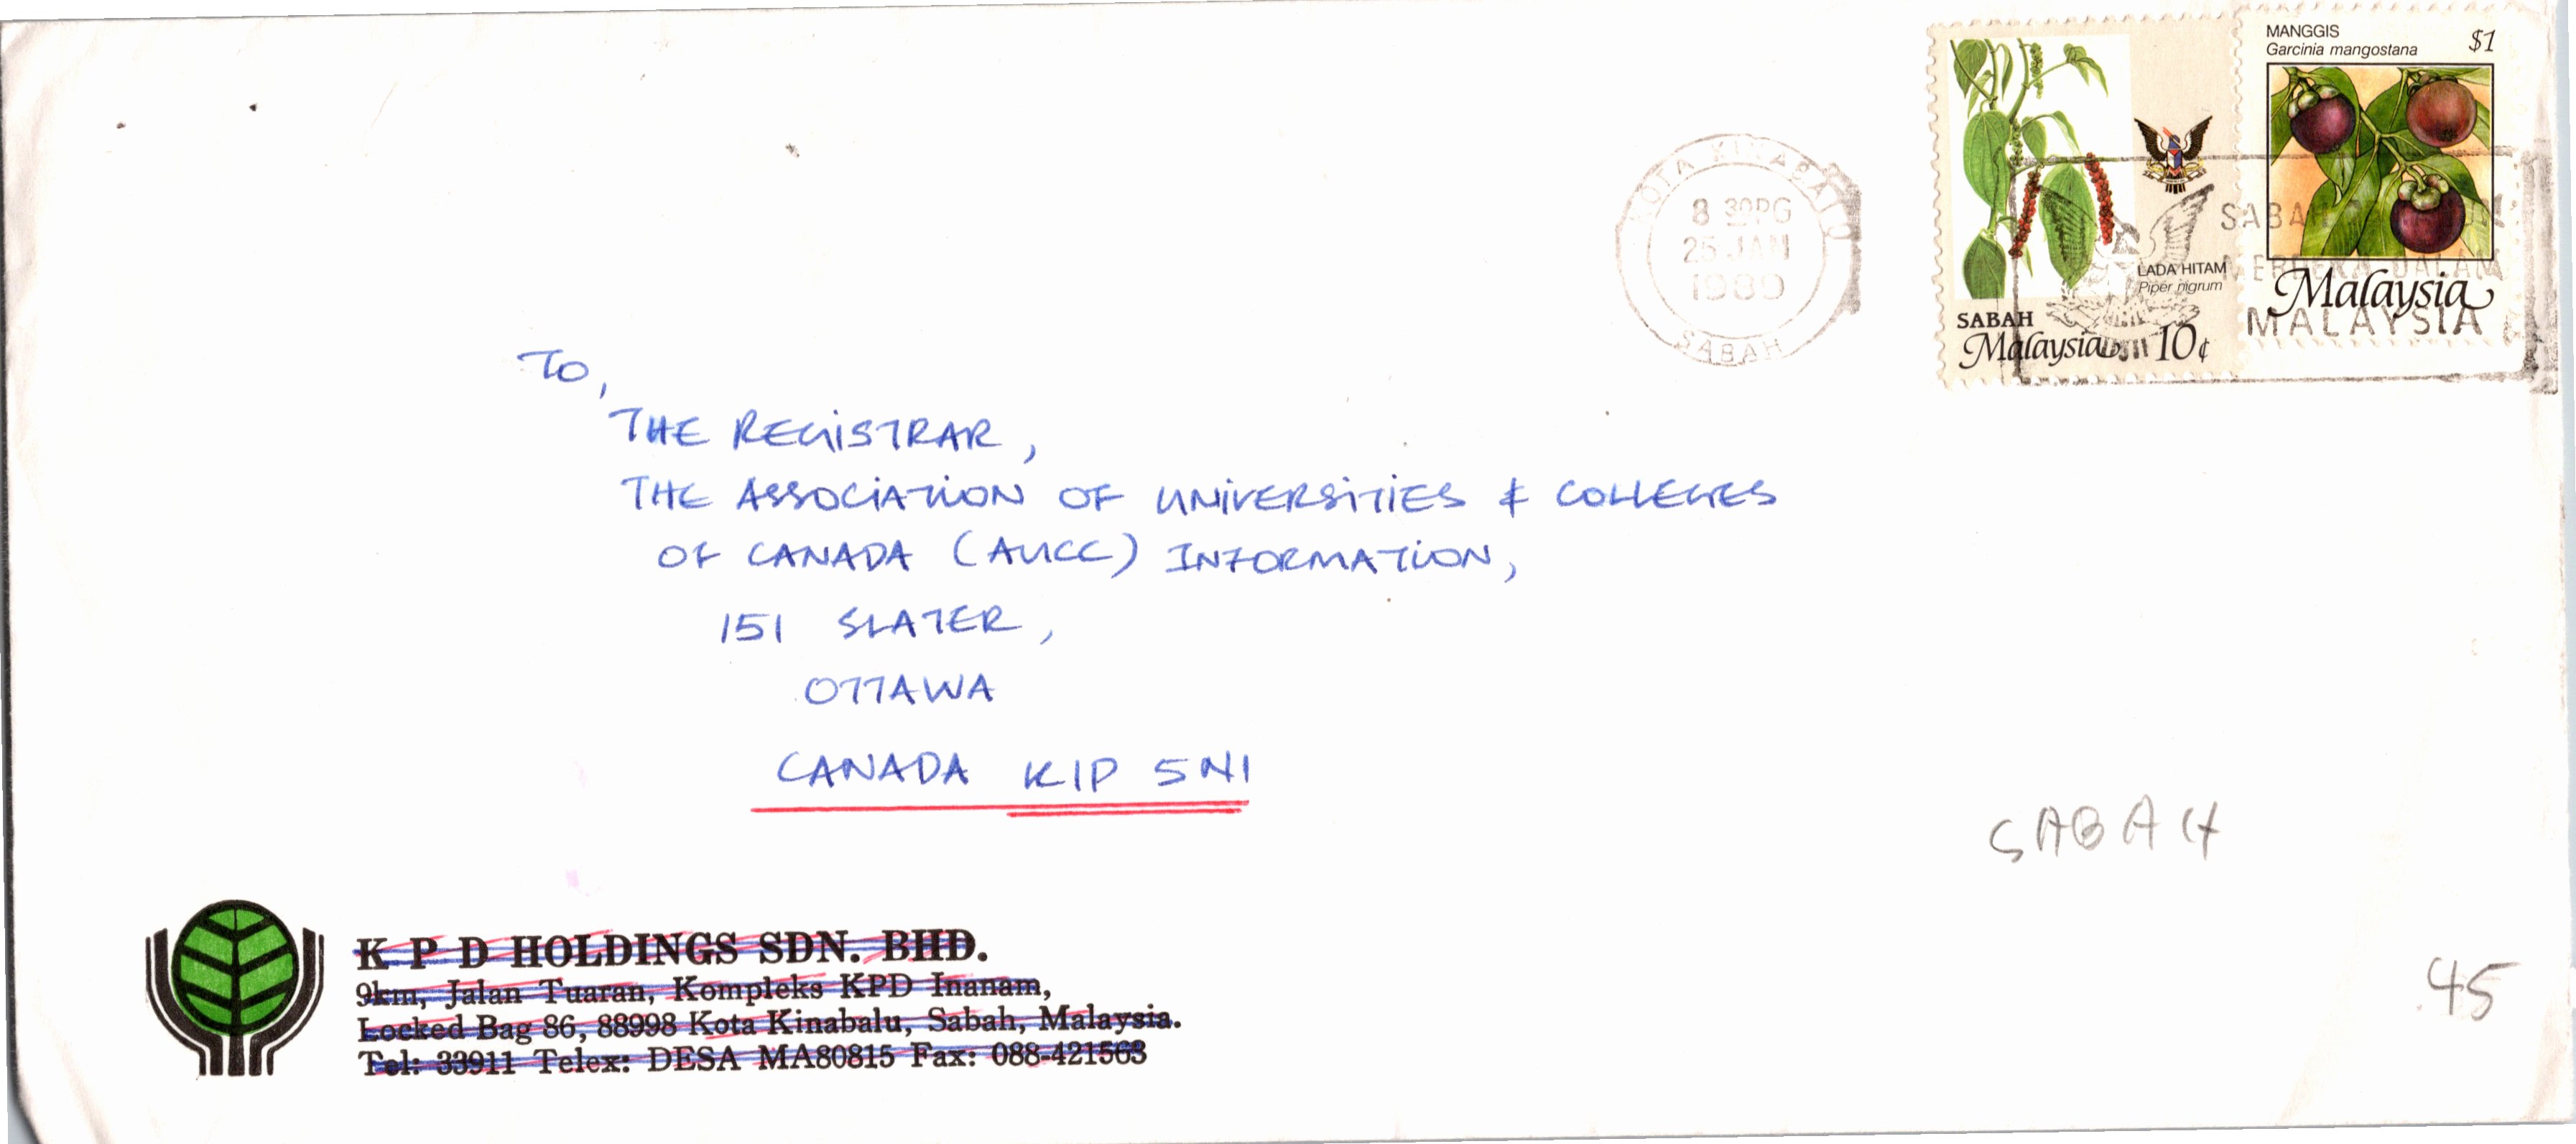 MANGGIS
Garcinia mangostana
$1
Malaysia
LADA HITAM
Piper nigrum
SABAH
Malaysia 10¢
KOTA KINABALU
8 30PG
25 JAN
1989
SABAH
SABAH
MERDEKA DALAM
MALAYSIA
To,
THE REGISTRAR,
THE ASSOCIATION OF UNIVERSITIES & COLLEGES
OF CANADA (AUCC) INFORMATION,
151 SLATER,
OTTAWA
CANADA K1P 5N1
SABAH
45
K P D HOLDINGS SDN. BHD.
9km, Jalan Tuaran, Kompleks KPD Inanam,
Locked Bag 86, 88998 Kota Kinabalu, Sabah, Malaysia.
Tel: 33911 Telex: DESA MA80815 Fax: 088-421563